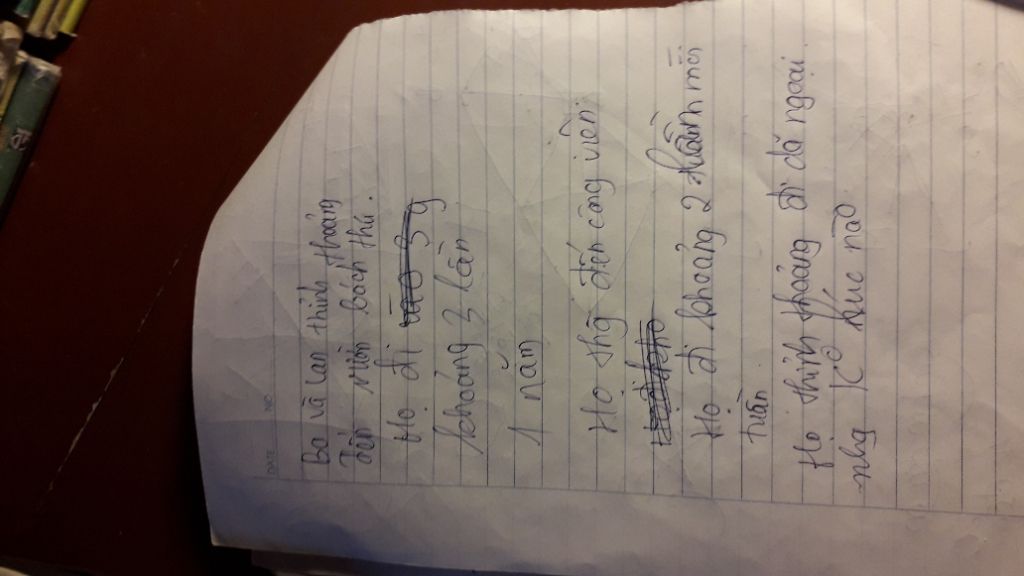 DATE NO
Ba và Lan thỉnh thoảng
đến viên bách thú.
Họ đi
khoảng 3 lần
1 năm
Họ thg đến công viên.
Họ đi khoảng 2 lần mỗi
tuần
Họ thỉnh thoảng đi dã ngoại
nhg K